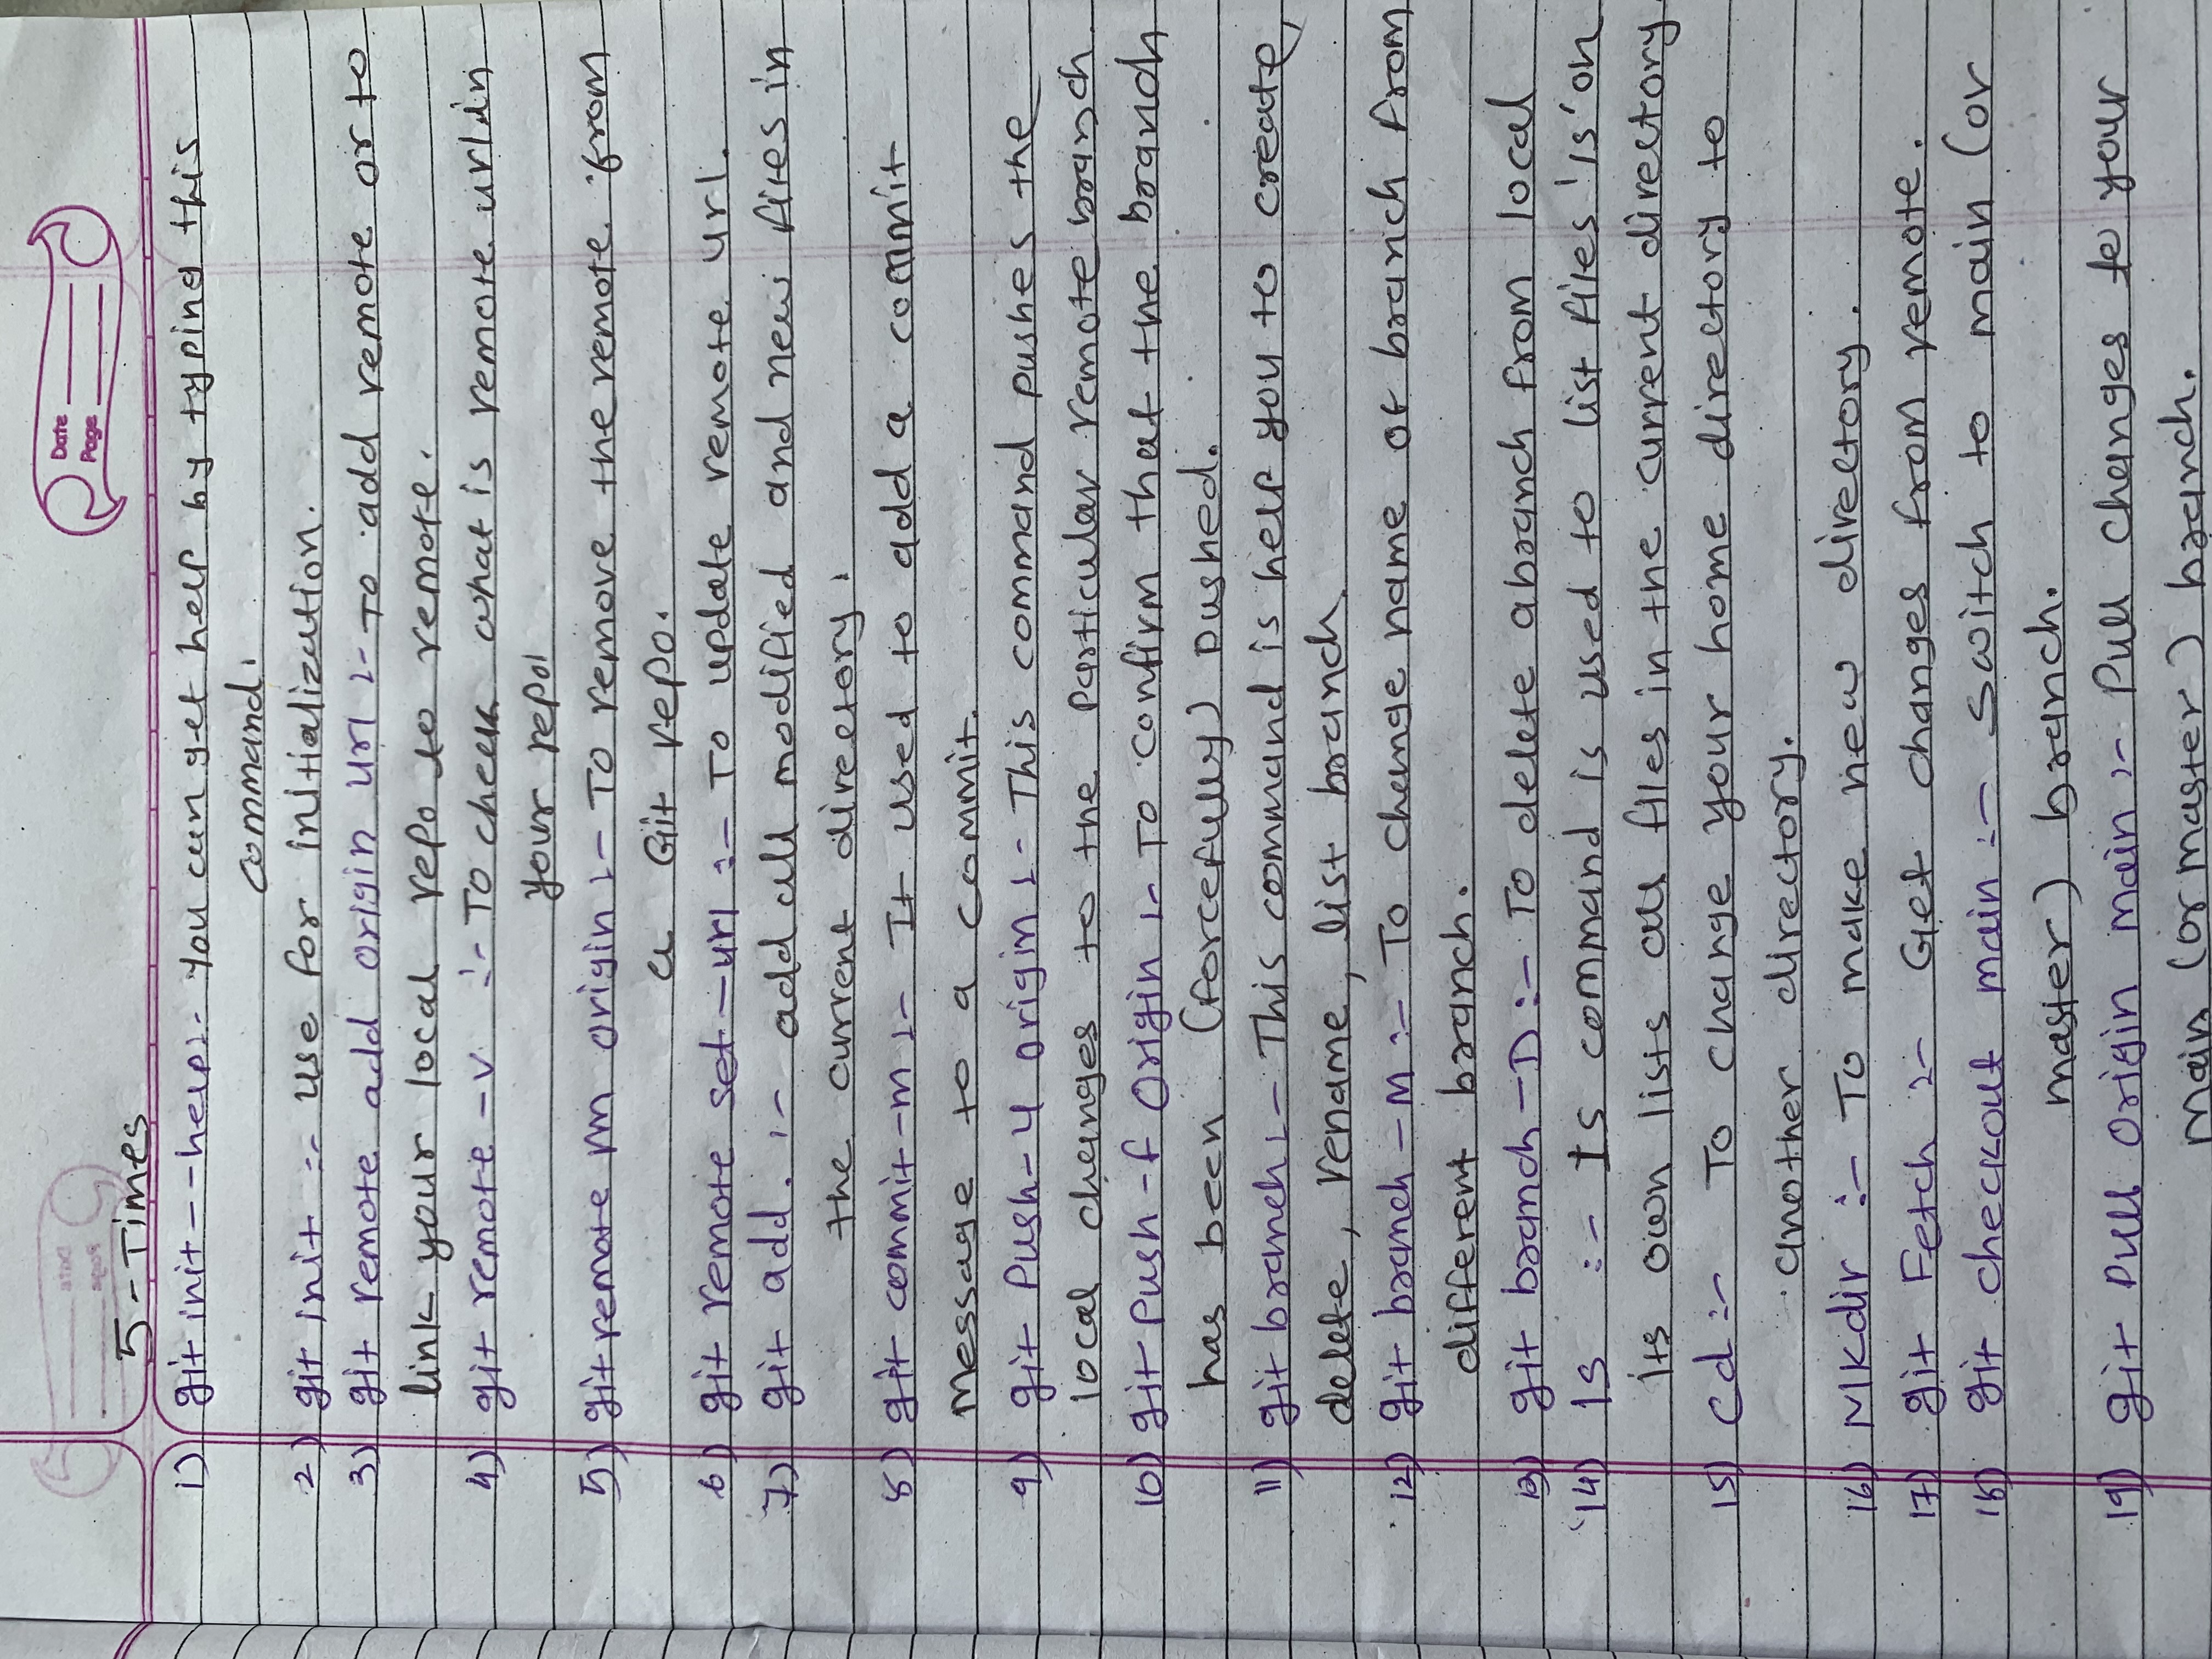 Date
Page
5-Times
1) git init --help :- You can get help by typing this
command.
2) git init :- use for initialization.
3) git remote add origin url :- To add remote or to
link your local repo to remote.
4) git remote -v. :- To check what is remote url in
your repo
5) git remote rm origin :- To remove the remote from
a Git repo.
6) git remote set-url :- To update remote url.
7) git add . :- add all modified and new files in
the current directory.
8) git commit -m :- It used to add a commit
message to a commit.
9) git Push -u origin :- This command pushes the
local changes to the particular remote branch
10) git Push -f Origin :- To confirm that the branch
has been (forcefully) pushed.
11) git branch :- This command is help you to create,
delete, rename, list branch
12) git branch -M :- To change name of branch from
different branch.
13) git branch -D :- To delete a branch from local
14) ls :- ls command is used to list files 'ls' on
its own lists all files in the current directory
15) cd :- To change your home directory to
another directory.
16) Mkdir :- To make new directory.
17) git Fetch :- Get changes from remote.
18) git checkout main :- Switch to main (or
master) branch.
19) git Pull Origin main :- Pull changes to your
main (or master) branch.